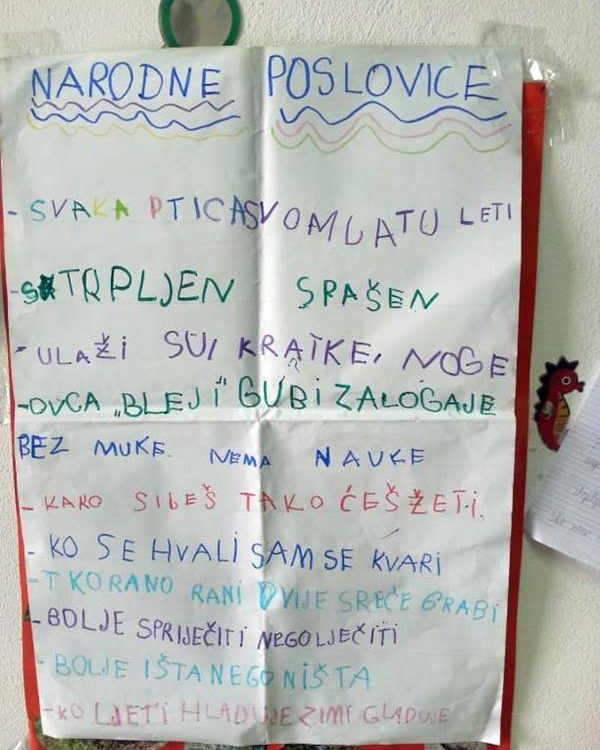 NARODNE POSLOVICE
- SVAKA PTICA SVOM JATU LETI
- STRPLJEN SPAŠEN
- U LAŽI SU KRATKE, NOGE
- OVCA „BLEJI" GUBI ZALOGAJE
BEZ MUKE. NEMA NAUKE
- KAKO SIJEŠ TAKO ĆEŠ ŽETI.
- KO SE HVALI SAM SE KVARI
- TKO RANO RANI DVIJE SREĆE GRABI
- BOLJE SPRIJEČITI NEGO LJEČITI
- BOLJE IŠTA NEGO NIŠTA
- KO LJETI HLADUJE ZIMI GLADUJE